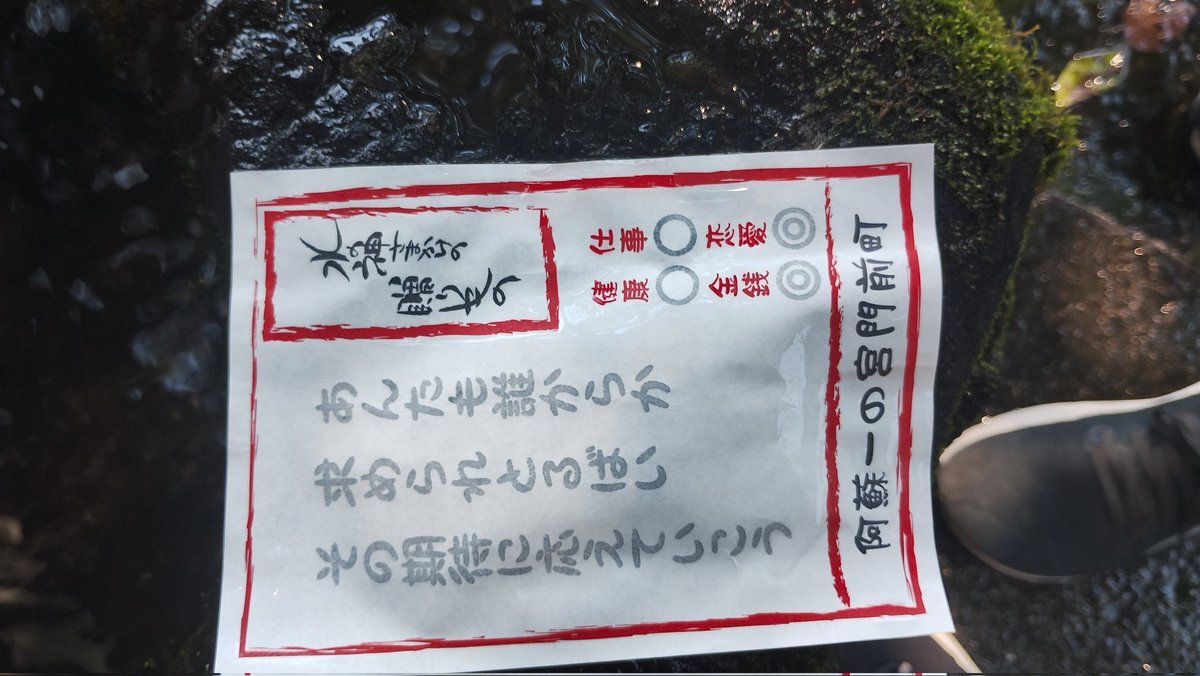 水神さまからの
贈りもの
仕事◯ 恋愛◎
健康◯ 金銭◎
あんたも誰からか
求められとるばい
その期待に応えていこう
阿蘇一の宮門前町